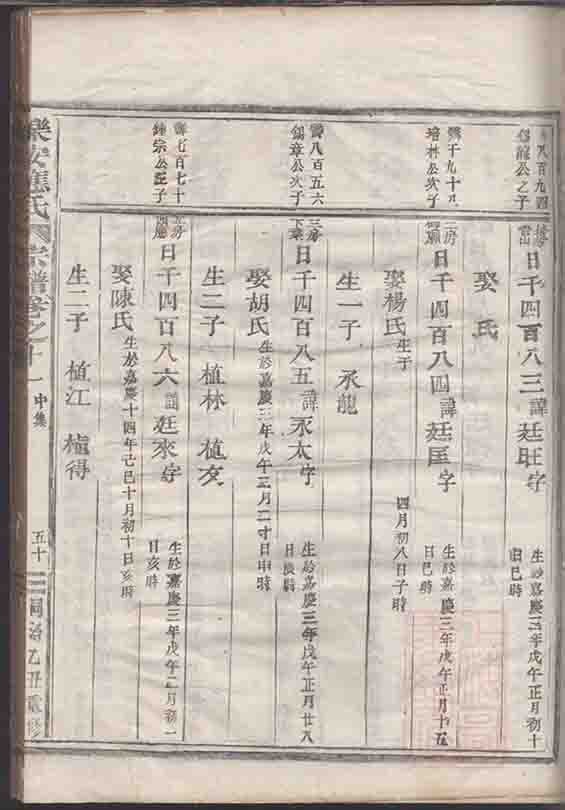 八百九四
龍公之子
日千四百八三諱廷旺字
生於嘉慶三年戊午正月初十
日巳時
娶 氏
千九十
培林公次子
三房
日千四百八四諱廷匡字
生於嘉慶三年戊午正月十五
日巳時
娶楊氏生于
四月初八日子時
生一子 永龍
八百五六
錫章公次子
三房
下章
日千四百八五諱永太字
生於嘉慶三年戊午正月廿八
日 時
娶胡氏生於嘉慶三年戊午三月二十日申時
生二子 植林 植友
七百七十
鍾宗公三子
日千四百八六諱廷來字
生於嘉慶三年戊午二月初一
日亥時
娶陳氏生於嘉慶十四年己巳十月初十日亥時
生二子 植江 植得
樂安蔣氏宗譜卷之十一 中集
五十
同治乙丑重修